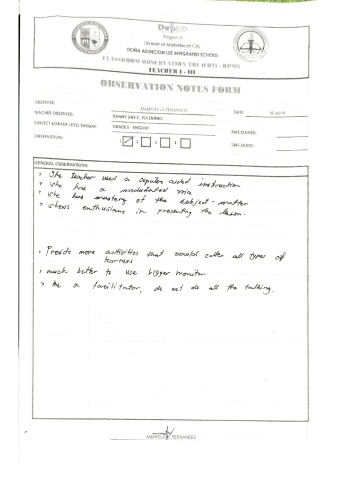 DepED
Region III
Division of Mabalacat City
DOÑA ASUNCION LEE INTEGRATED SCHOOL
CLASSROOM OBSERVATION TOOL (COT) - RPMS
TEACHER I - III
OBSERVATION NOTES FORM
OBSERVER: ANAPOLA M. FERNANDEZ DATE
TEACHER OBSERVED: DANNY C. TOLENTINO
SUBJECT & GRADE LEVEL TAUGHT: GRADE 5 - ENGLISH TIME STARTED:
OBSERVATION: 1 2 3 4 TIME ENDED:
GENERAL OBSERVATIONS:
> The teacher used a computer aided instruction
> She has a modulated voice
> She has mastery of the subject-matter
> shows enthusiasm in presenting the lesson.
> Provide more activities that would cater all types of
learners
> much better to use bigger monitor
> be a facilitator, do not do all the talking.
ANAPOLA M. FERNANDEZ